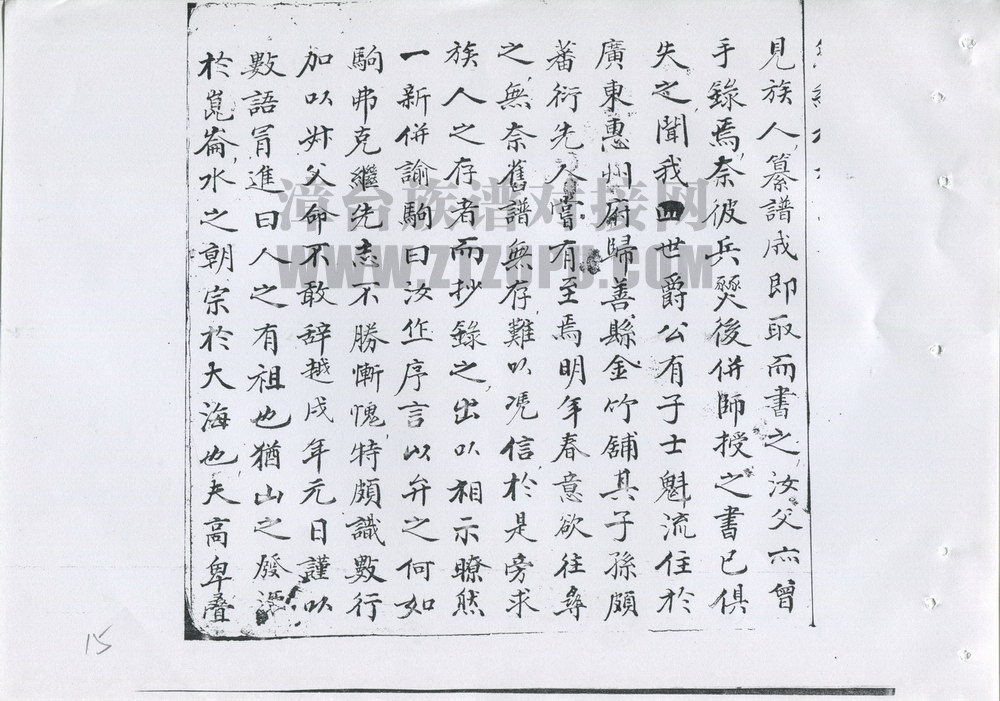 見族人纂譜成即取而書之汝父亦曾
手錄焉奈彼兵燹後併師授之書已俱
失之聞我四世爵公有子士魁流住於
廣東惠州府歸善縣金竹舖其子孫頗
蕃衍先人嘗有至焉明年春意欲往尋
之無奈舊譜無存難以凴信於是旁求
族人之存者而抄錄之出以相示瞭然
一新併諭駒曰汝作序言以弁之何如
駒弗克繼先志不勝慚愧特頗識數行
加以父命不敢辞越戌年元日謹以
數語冐進曰人之有祖也猶山之發源
於崑崙水之朝宗於大海也夫高卑叠
漳台族谱对接网
WWW.ZTZUPU.COM
15